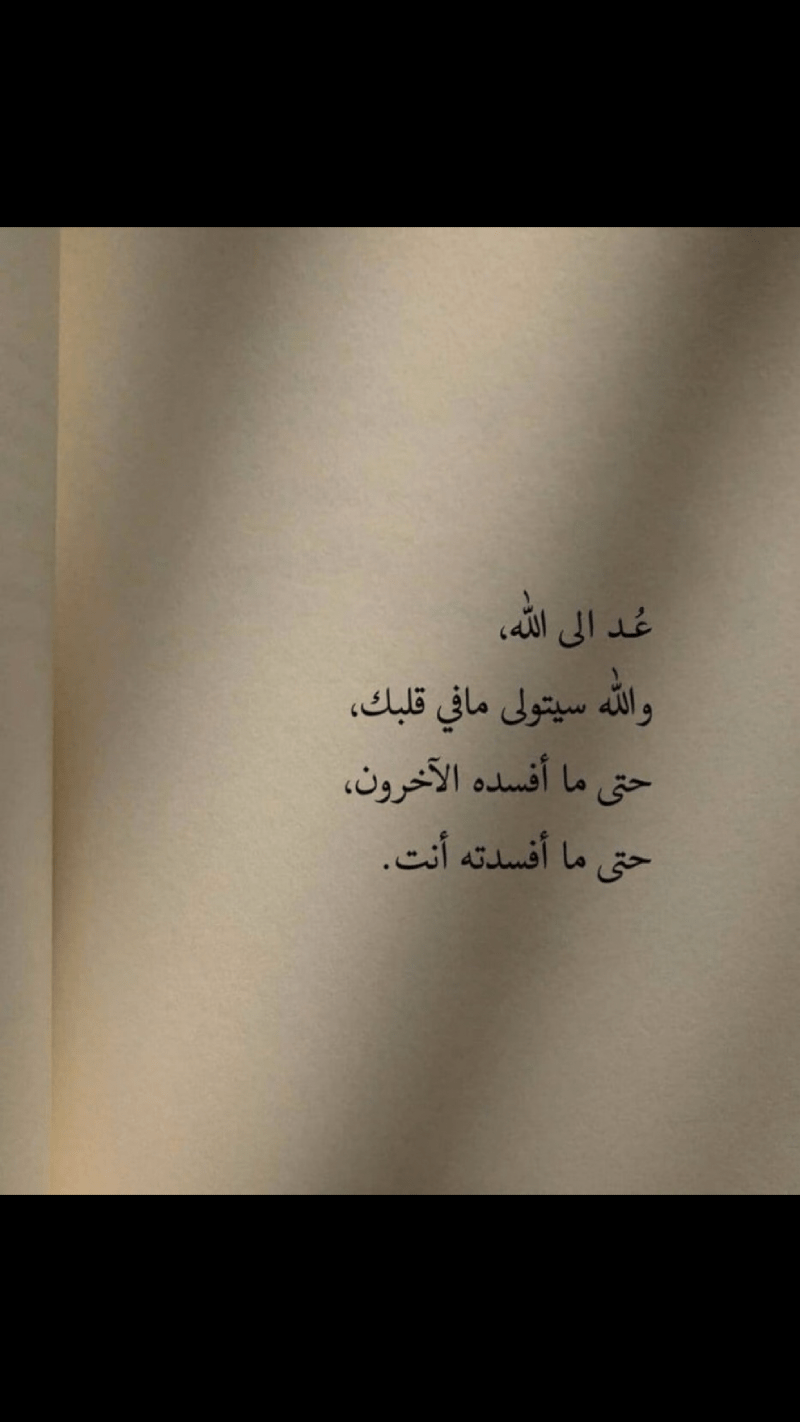 عُـد الى الله،
والله سيتولى مافي قلبك،
حتى ما أفسده الآخرون،
حتى ما أفسدته أنت.